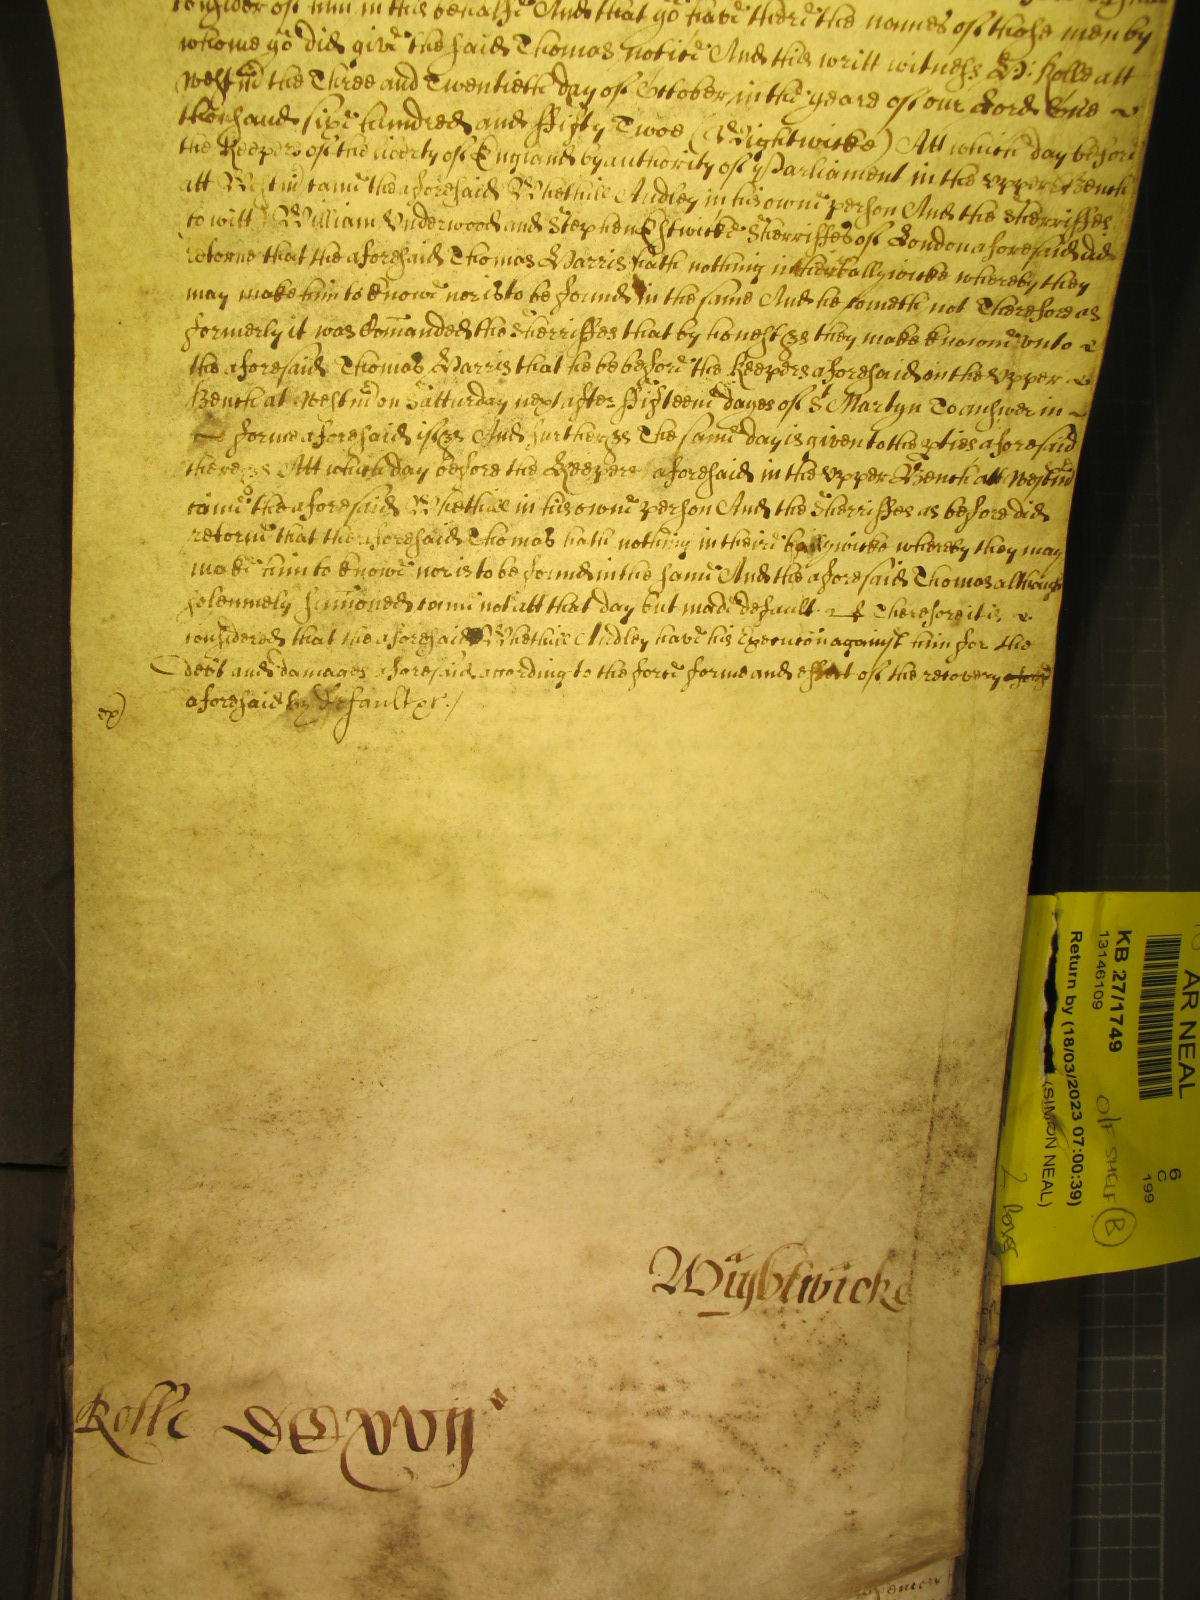 consider of him in this behalfe And that yo have there the names of those men by
whome yo did give the said Thomas notice And this writt witness H: Rolle att
Westm the Three and Twentieth day of October in the yeare of our Lord One
thousand sixe hundred and ffifty Twoe (Wightwicke) Att which day before
the Keepers of the liberty of England by authority of Parliament in the vpper Bench
att Westm came the aforesaid Whethill Audley in his owne person And the Sherriffes
to witt William Vnderwood and Stephen Estwicke Sherriffes of London aforesaid did
retorne that the aforesaid Thomas Harris hath nothing in their ballywicke whereby they
may make him to knowe nor is to be found in the same And he cometh not Therefore as
formerly it was Comanded the Sherriffes that by honest &c they make knowne vnto
the aforesaid Thomas Harris that he be before the Keepers aforesaid in the vpper
Bench at Westm on Satturday next after ffifteene dayes of St Martyn To answer in
forme aforesaid if &c And further &c The same day is given to the pties aforesaid
there &c Att which day before the Keepers aforesaid in the vpper Bench att Westm
came the aforesaid Whethill in his owne person And the Sherriffes as before did
retorne that the aforesaid Thomas hath nothing in their ballywicke whereby they may
make him to knowe nor is to be found in the same And the aforesaid Thomas although
solemnely sumoned came not att that day but made default Therefore it is
considered that the aforesaid Whethill Audley have his Execucon against him for the
debt and damages aforesaid according to the force forme and effect of the recovery
aforesaid by default &c /
Wightwicke
Rolle DCxvij
AR NEAL
6
C
199
KB 27/1749
13146109
O/F SHELF B
Return by (18/03/2023 07:00:39)
(SIMON NEAL)